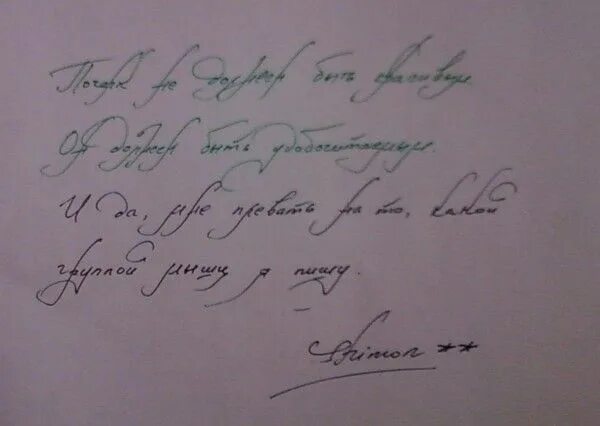 Почерк не должен быть красивым
Он должен быть удобочитаемым.
И да, мне плевать на то, какой
группой мышц я пишу.
Shimon **